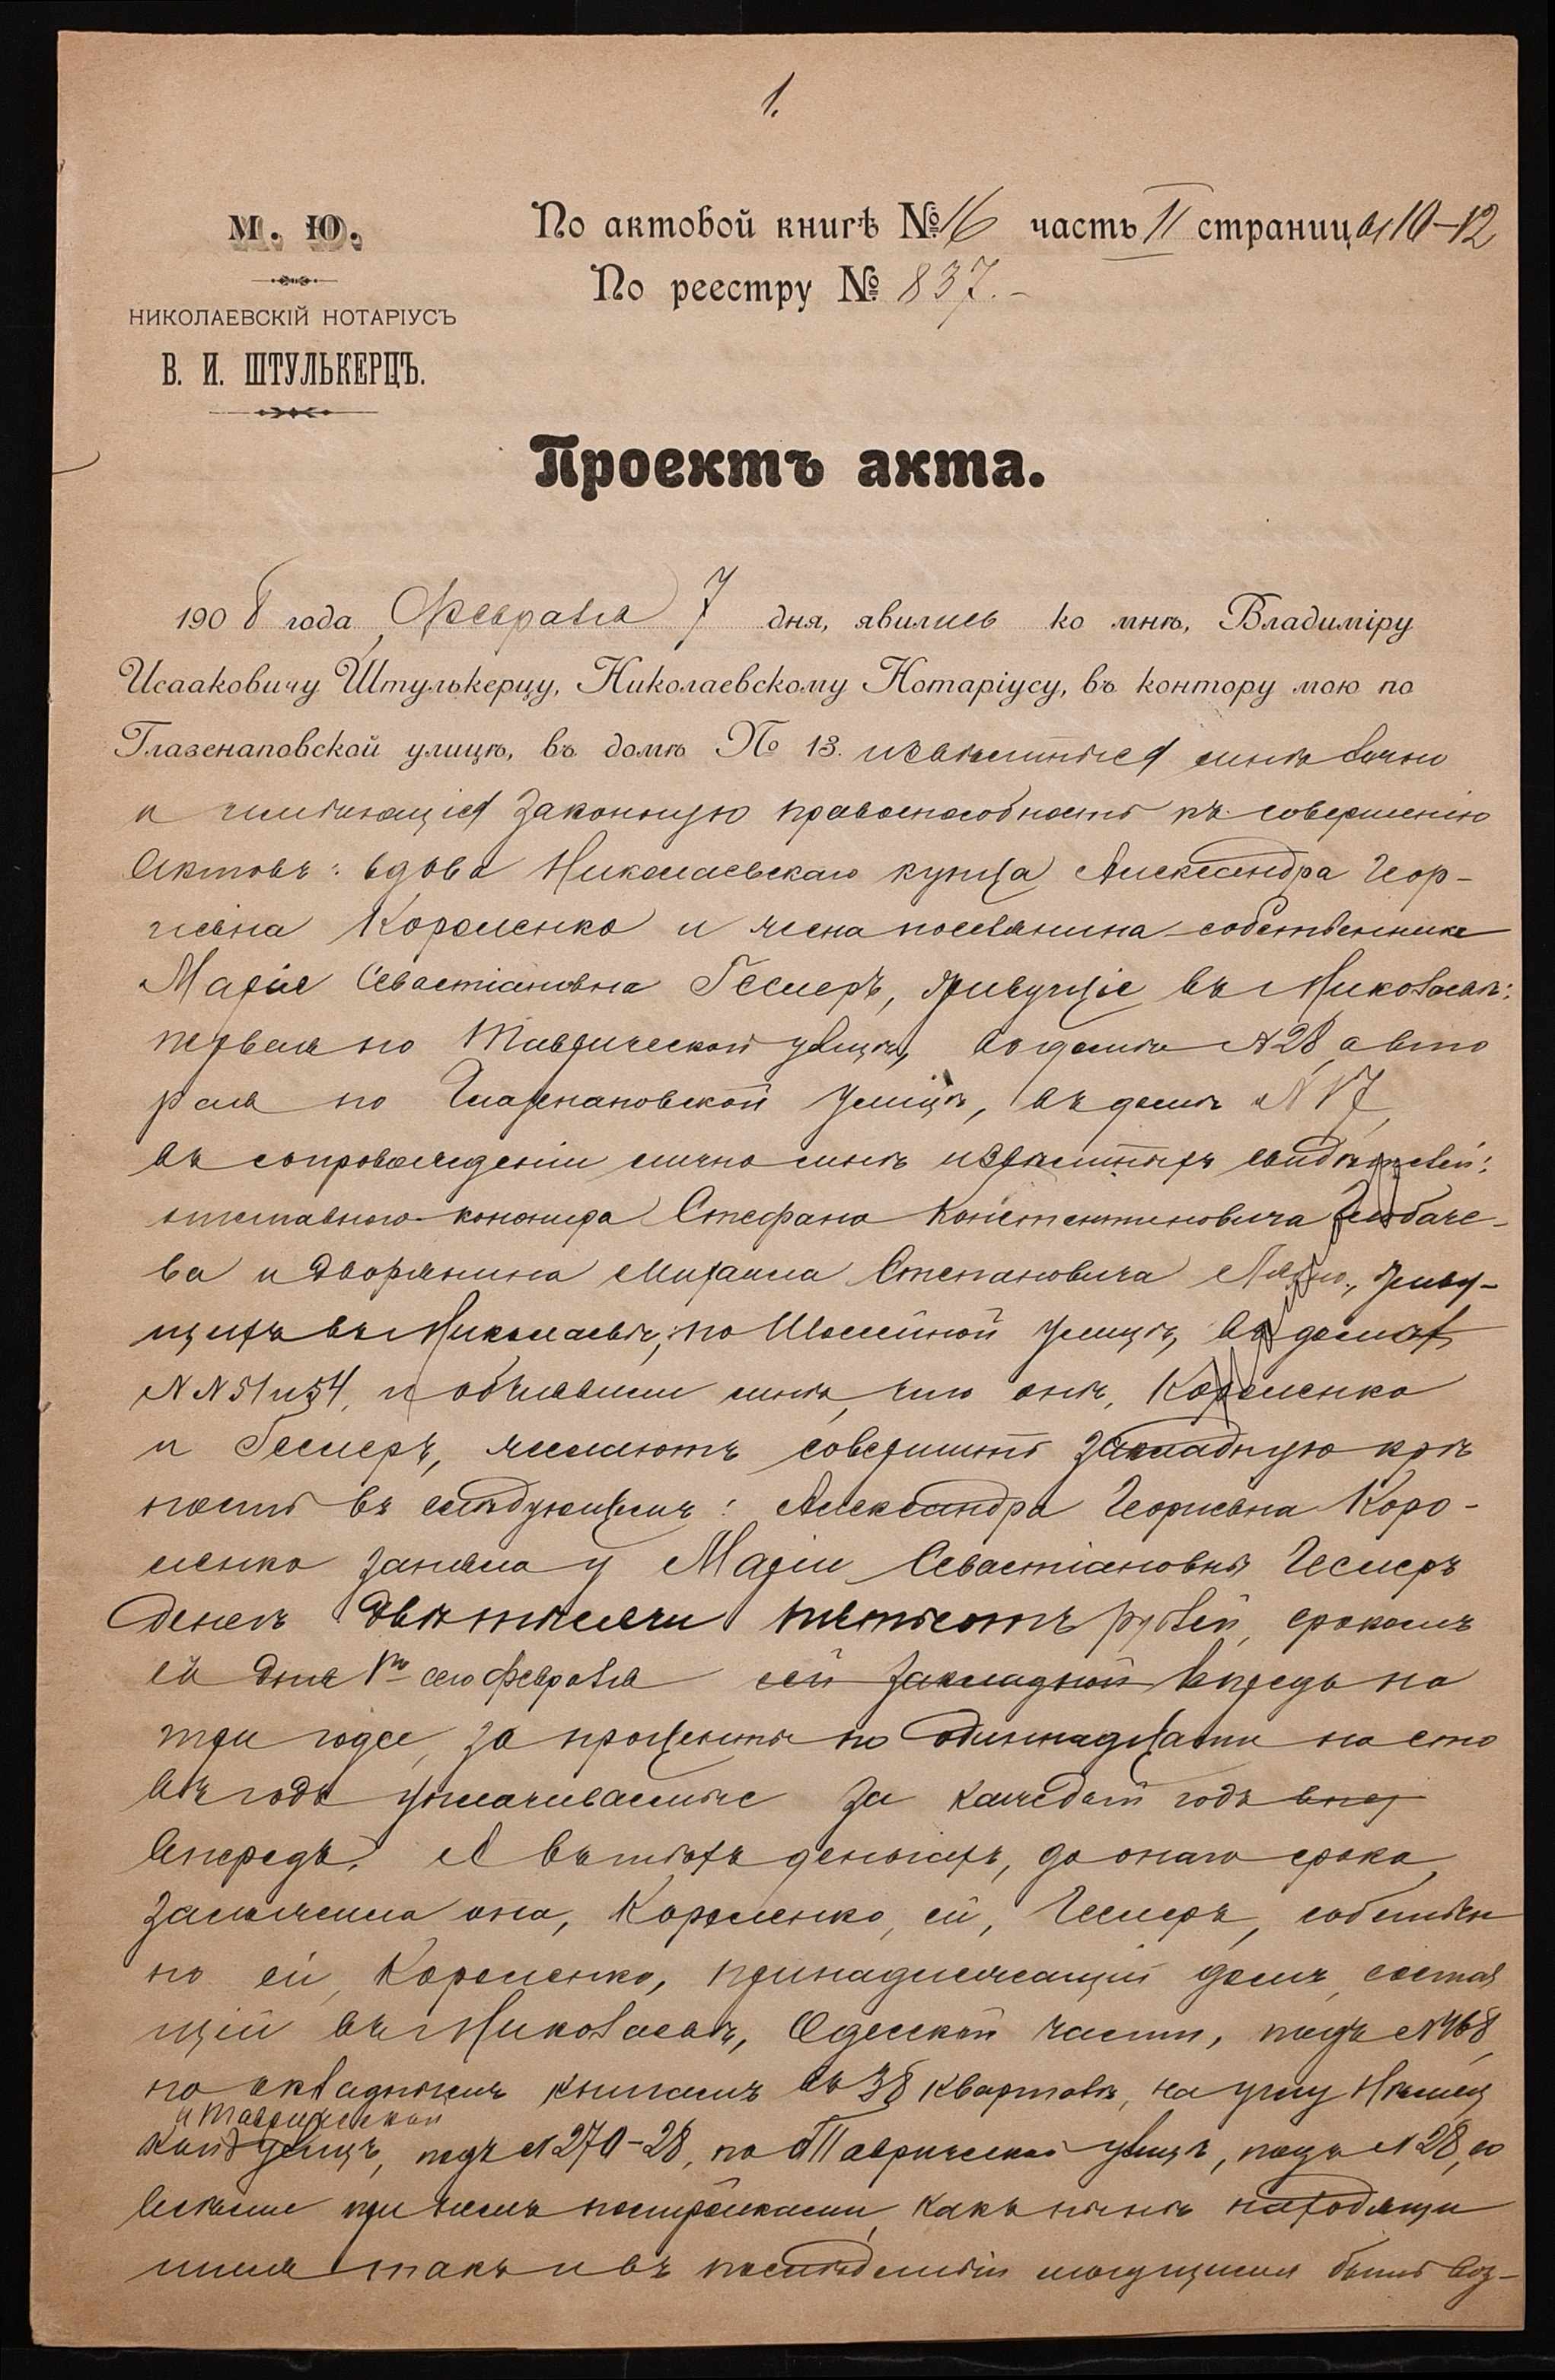 1.
М. Ю.
НИКОЛАЕВСКІЙ НОТАРІУСЪ
В. И. ШТУЛЬКЕРЦЪ.
По актовой книгѣ № 16 часть II страницы 10-12
По реестру № 837.-
Проектъ акта.
1908 года Февраля 7 дня, явились ко мнѣ, Владиміру
Исааковичу Штулькерцу, Николаевскому Нотаріусу, въ контору мою по
Глазенаповской улицѣ, въ домѣ № 13. извѣстныя мнѣ лично
и имѣющія законную правоспособность къ совершенію
актовъ: вдова Николаевскаго купца Александра Геор-
гіевна Короленко и жена поселянина-собственника
Марія Севастіановна Геслеръ, живущіе въ Николаевѣ:
первая по Таврической улицѣ, въ домѣ № 28, а вто
рая по Глазенаповской улицѣ, въ домѣ № 17,
въ сопровожденіи лично мнѣ извѣстныхъ свидѣтелей:
отставного Стефана Константиновича
ва и дворянина Михаила Степановича живу-
щихъ въ Николаевѣ, по Шоссейной улицѣ, въ домахъ
№ № 51 и 54, и объявили мнѣ, что онѣ, Короленко
и Геслеръ, желаютъ совершить закладную крѣ
пость въ слѣдующемъ: Александра Георгіевна Коро-
ленко заняла у Маріи Севастіановны Геслеръ
денегъ двѣ тысячи пятьсотъ рублей, срокомъ
со дня 1го сего февраля сей закладной впредь на
три года, за проценты по одиннадцати на сто
въ годъ уплачиваемые за каждый годъ впер
впередъ. А въ тѣхъ деньгахъ, до онаго срока,
заложила она, Короленко, ей, Геслеръ, собствен
но ей, Короленко, принадлежащій домъ, состоя
щій въ Николаевѣ, Одесской части, подъ № 468,
по окладнымъ книгамъ въ 38 кварталѣ, на углу Нѣмец
и Таврической
кой улицъ, подъ № 270-28, по Таврической улицѣ, подъ № 28, со
всѣми при немъ постройками, какъ нынѣ находящи
мися такъ и въ послѣдствіи могущими быть воз-